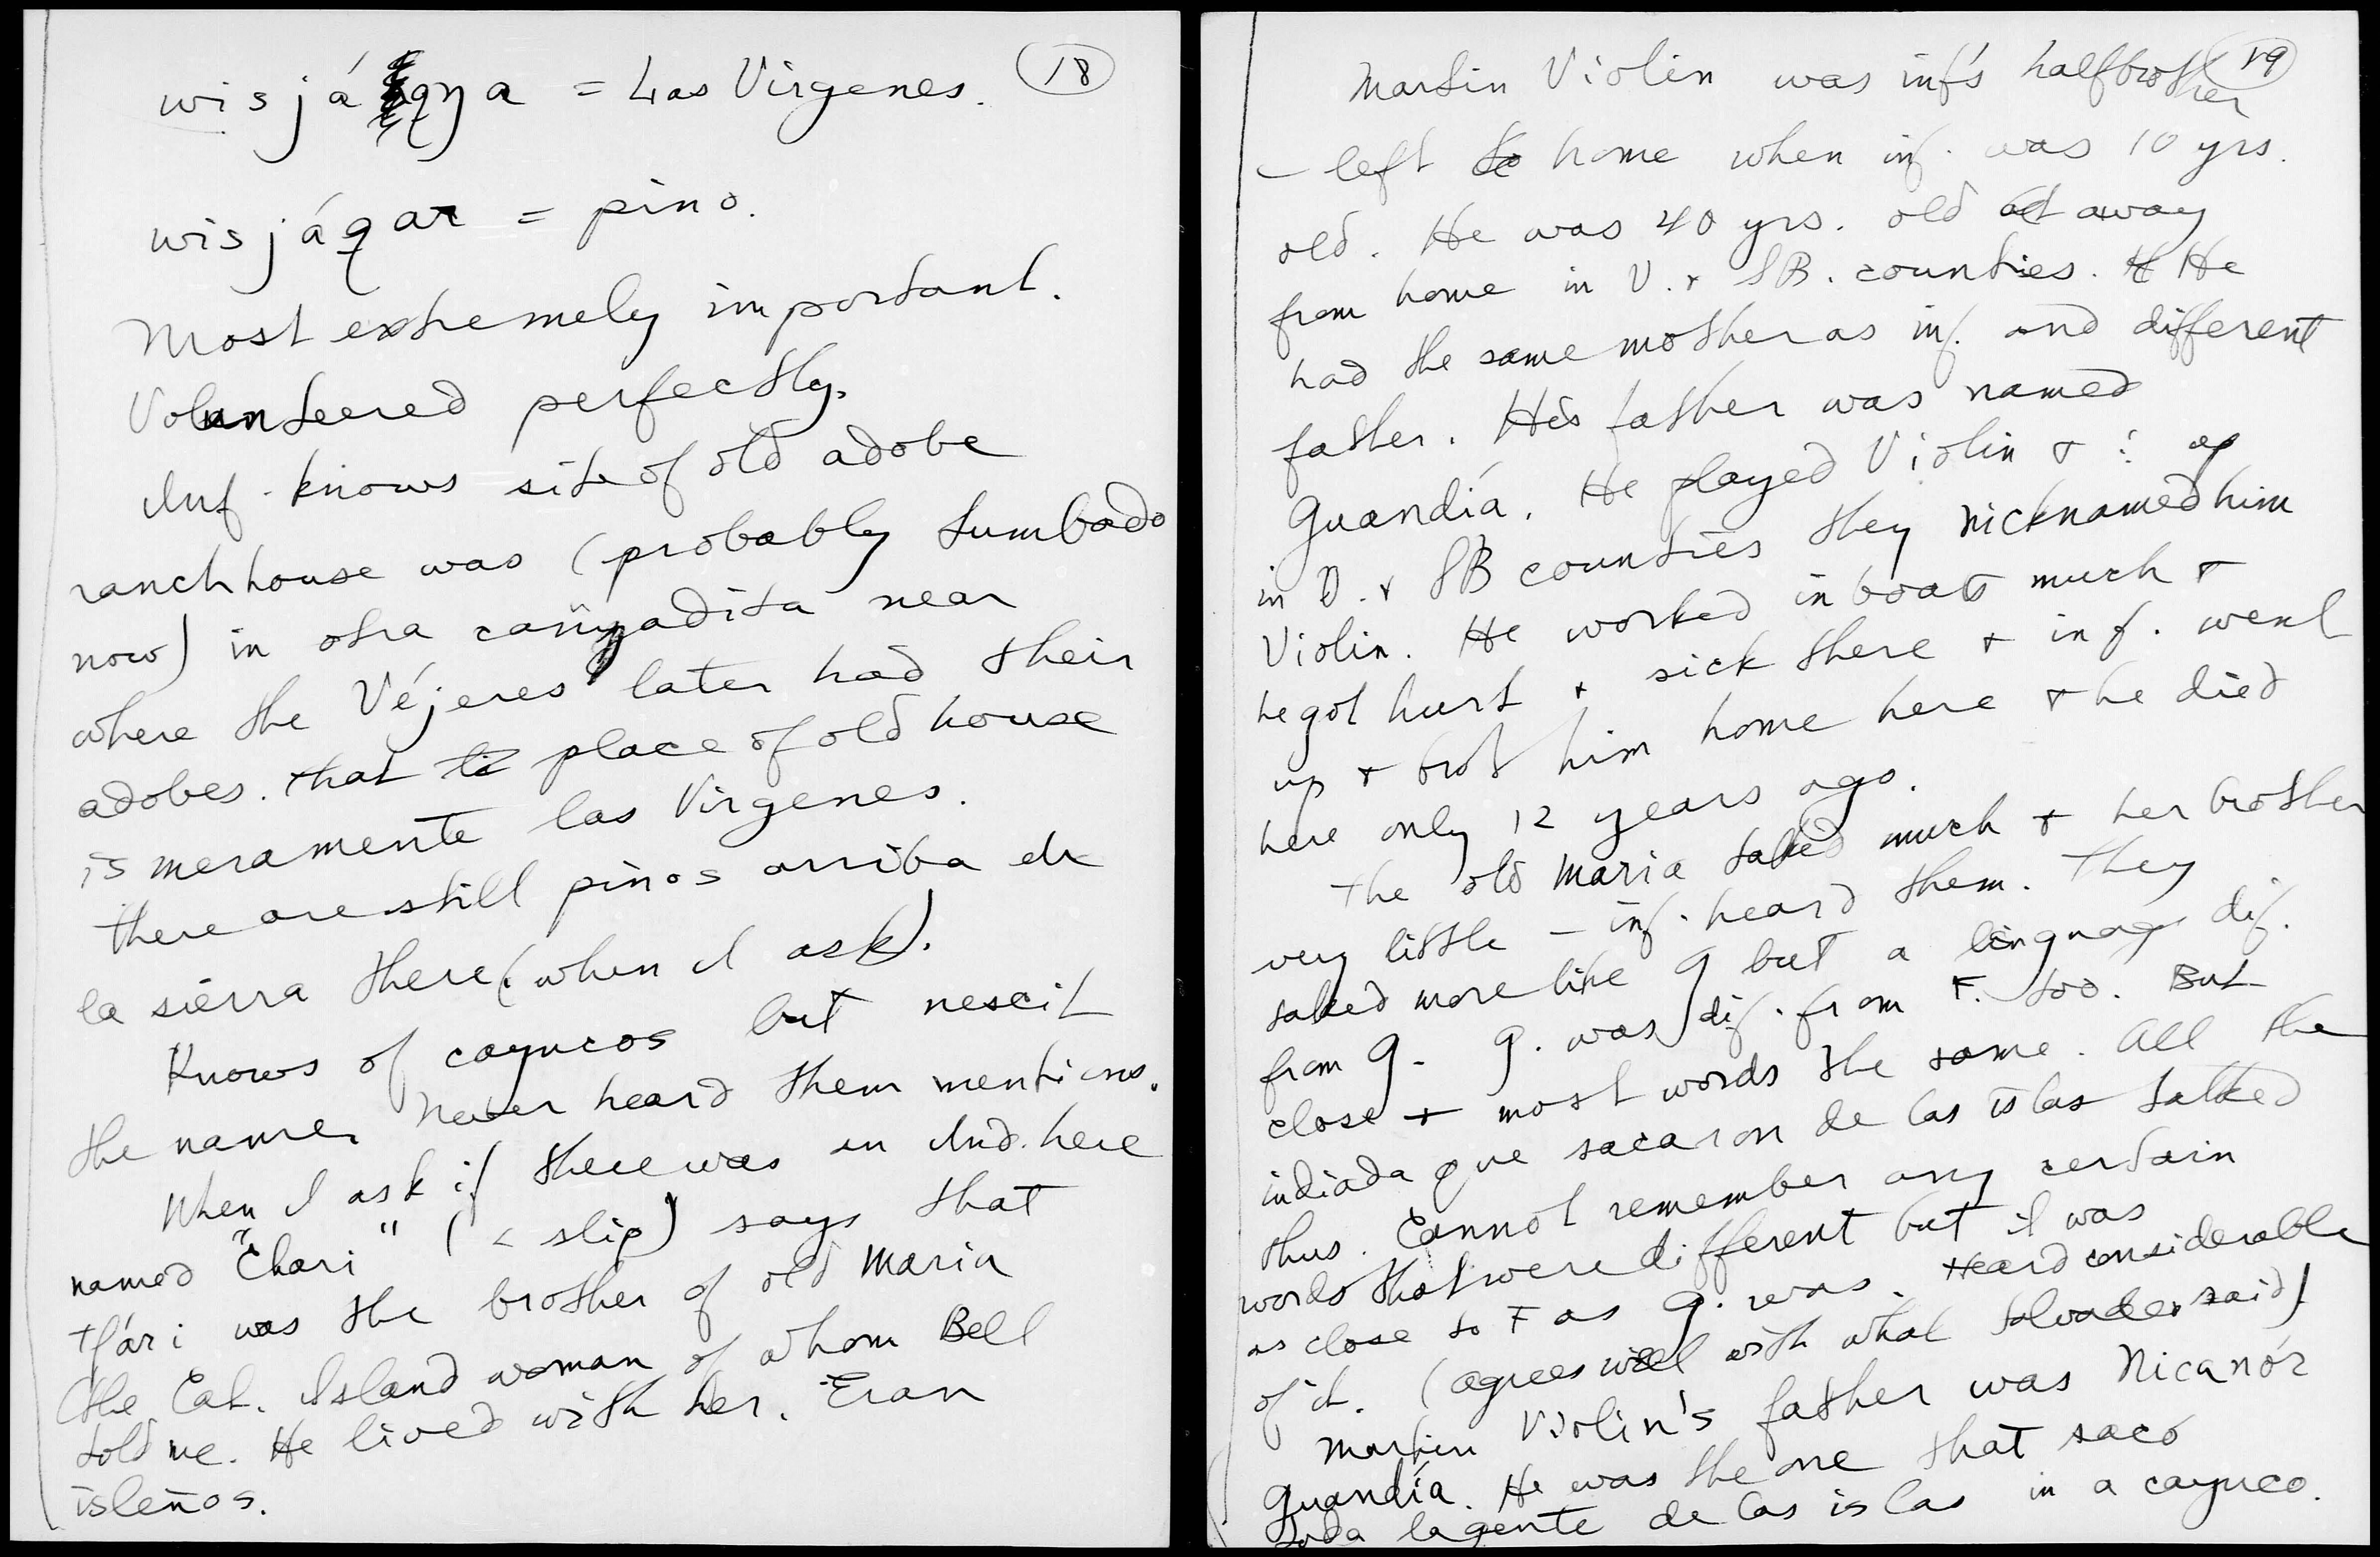 wisjáqŋa = Las Virgenes. 18
wisjáqar = pino.
Most extremely important.
Volunteered perfectly.
Inf. knows site of old adobe
ranchhouse was (probably tumbado
now) in otra cañyadita near
where the Véjeres later had their
adobes. that ti place of old house
is meramente las Virgenes.
there are still pinos arriba de
la sierra there (when I ask).
Knows of cayucos but nescit
the name. Never heard them mentions.
When I ask if there was an Ind. here
named "Chari" (< slip) says that
tʃári was the brother of old Maria
(the Cat. Island woman of whom Bell
told me. He lived with her. Eran
isleños.
Martin Violin was inf's halfbrother 19
– left to home when inf. was 10 yrs.
old. He was 40 yrs. old at away
from home in V. + SB. counties. H He
had the same mother as inf. and different
father. His father was named
Guandía. He played Violin + : up
in V. + SB counties they nicknamed him
Violin. He worked in boats much +
he got hurt + sick there + inf. went
up + brot him home here + he died
here only 12 years ago.
The old Maria talked much + her brother
very little – inf. heard them. They
talked more like G but a language dif.
from G. G. was dif. from F. too. But
close + most words the same. All the
indiada que sacaron de las islas talked
thus. Cannot remember any certain
words that were different but it was
as close to F as G. was. Heard considerable
of it. (agrees well with what Salvador said)
Martin Violin's father was Nicanór
Guandía. He was the one that sacó
toda la gente de las islas in a cayuco.